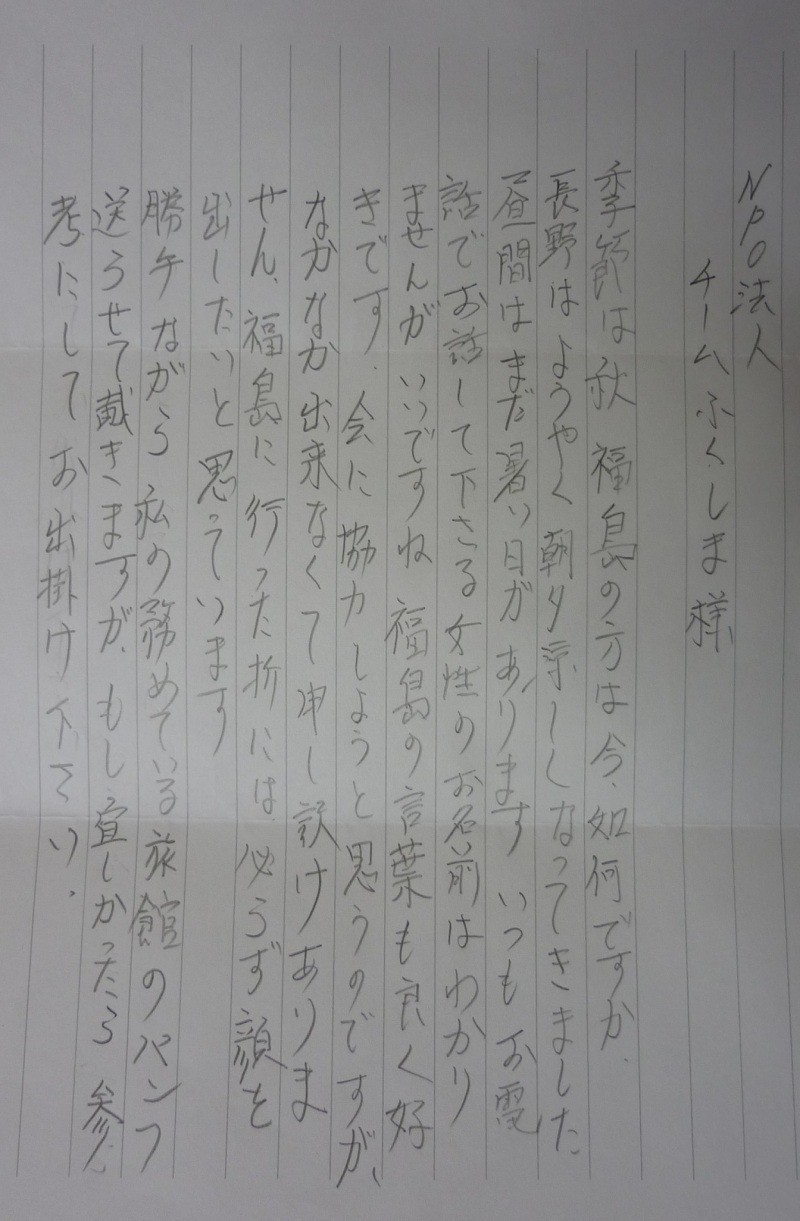 NPO法人
チームふくしま様
季節は秋 福島の方は今、如何ですか、
長野はようやく朝夕涼しくなってきました
昼間はまだ暑い日があります いつもお電
話でお話して下さる女性のお名前はわかり
ませんがいいですね 福島の言葉も良く好
きです、会に協力しようと思うのですが、
なかなか出来なくて申し訳けありま
せん、福島に行った折には必らず顔を
出したいと思っています
勝手ながら私の務めている旅館のパンフ
送らせて戴きますが、もし宜しかったら参
考にしてお出掛け下さい、